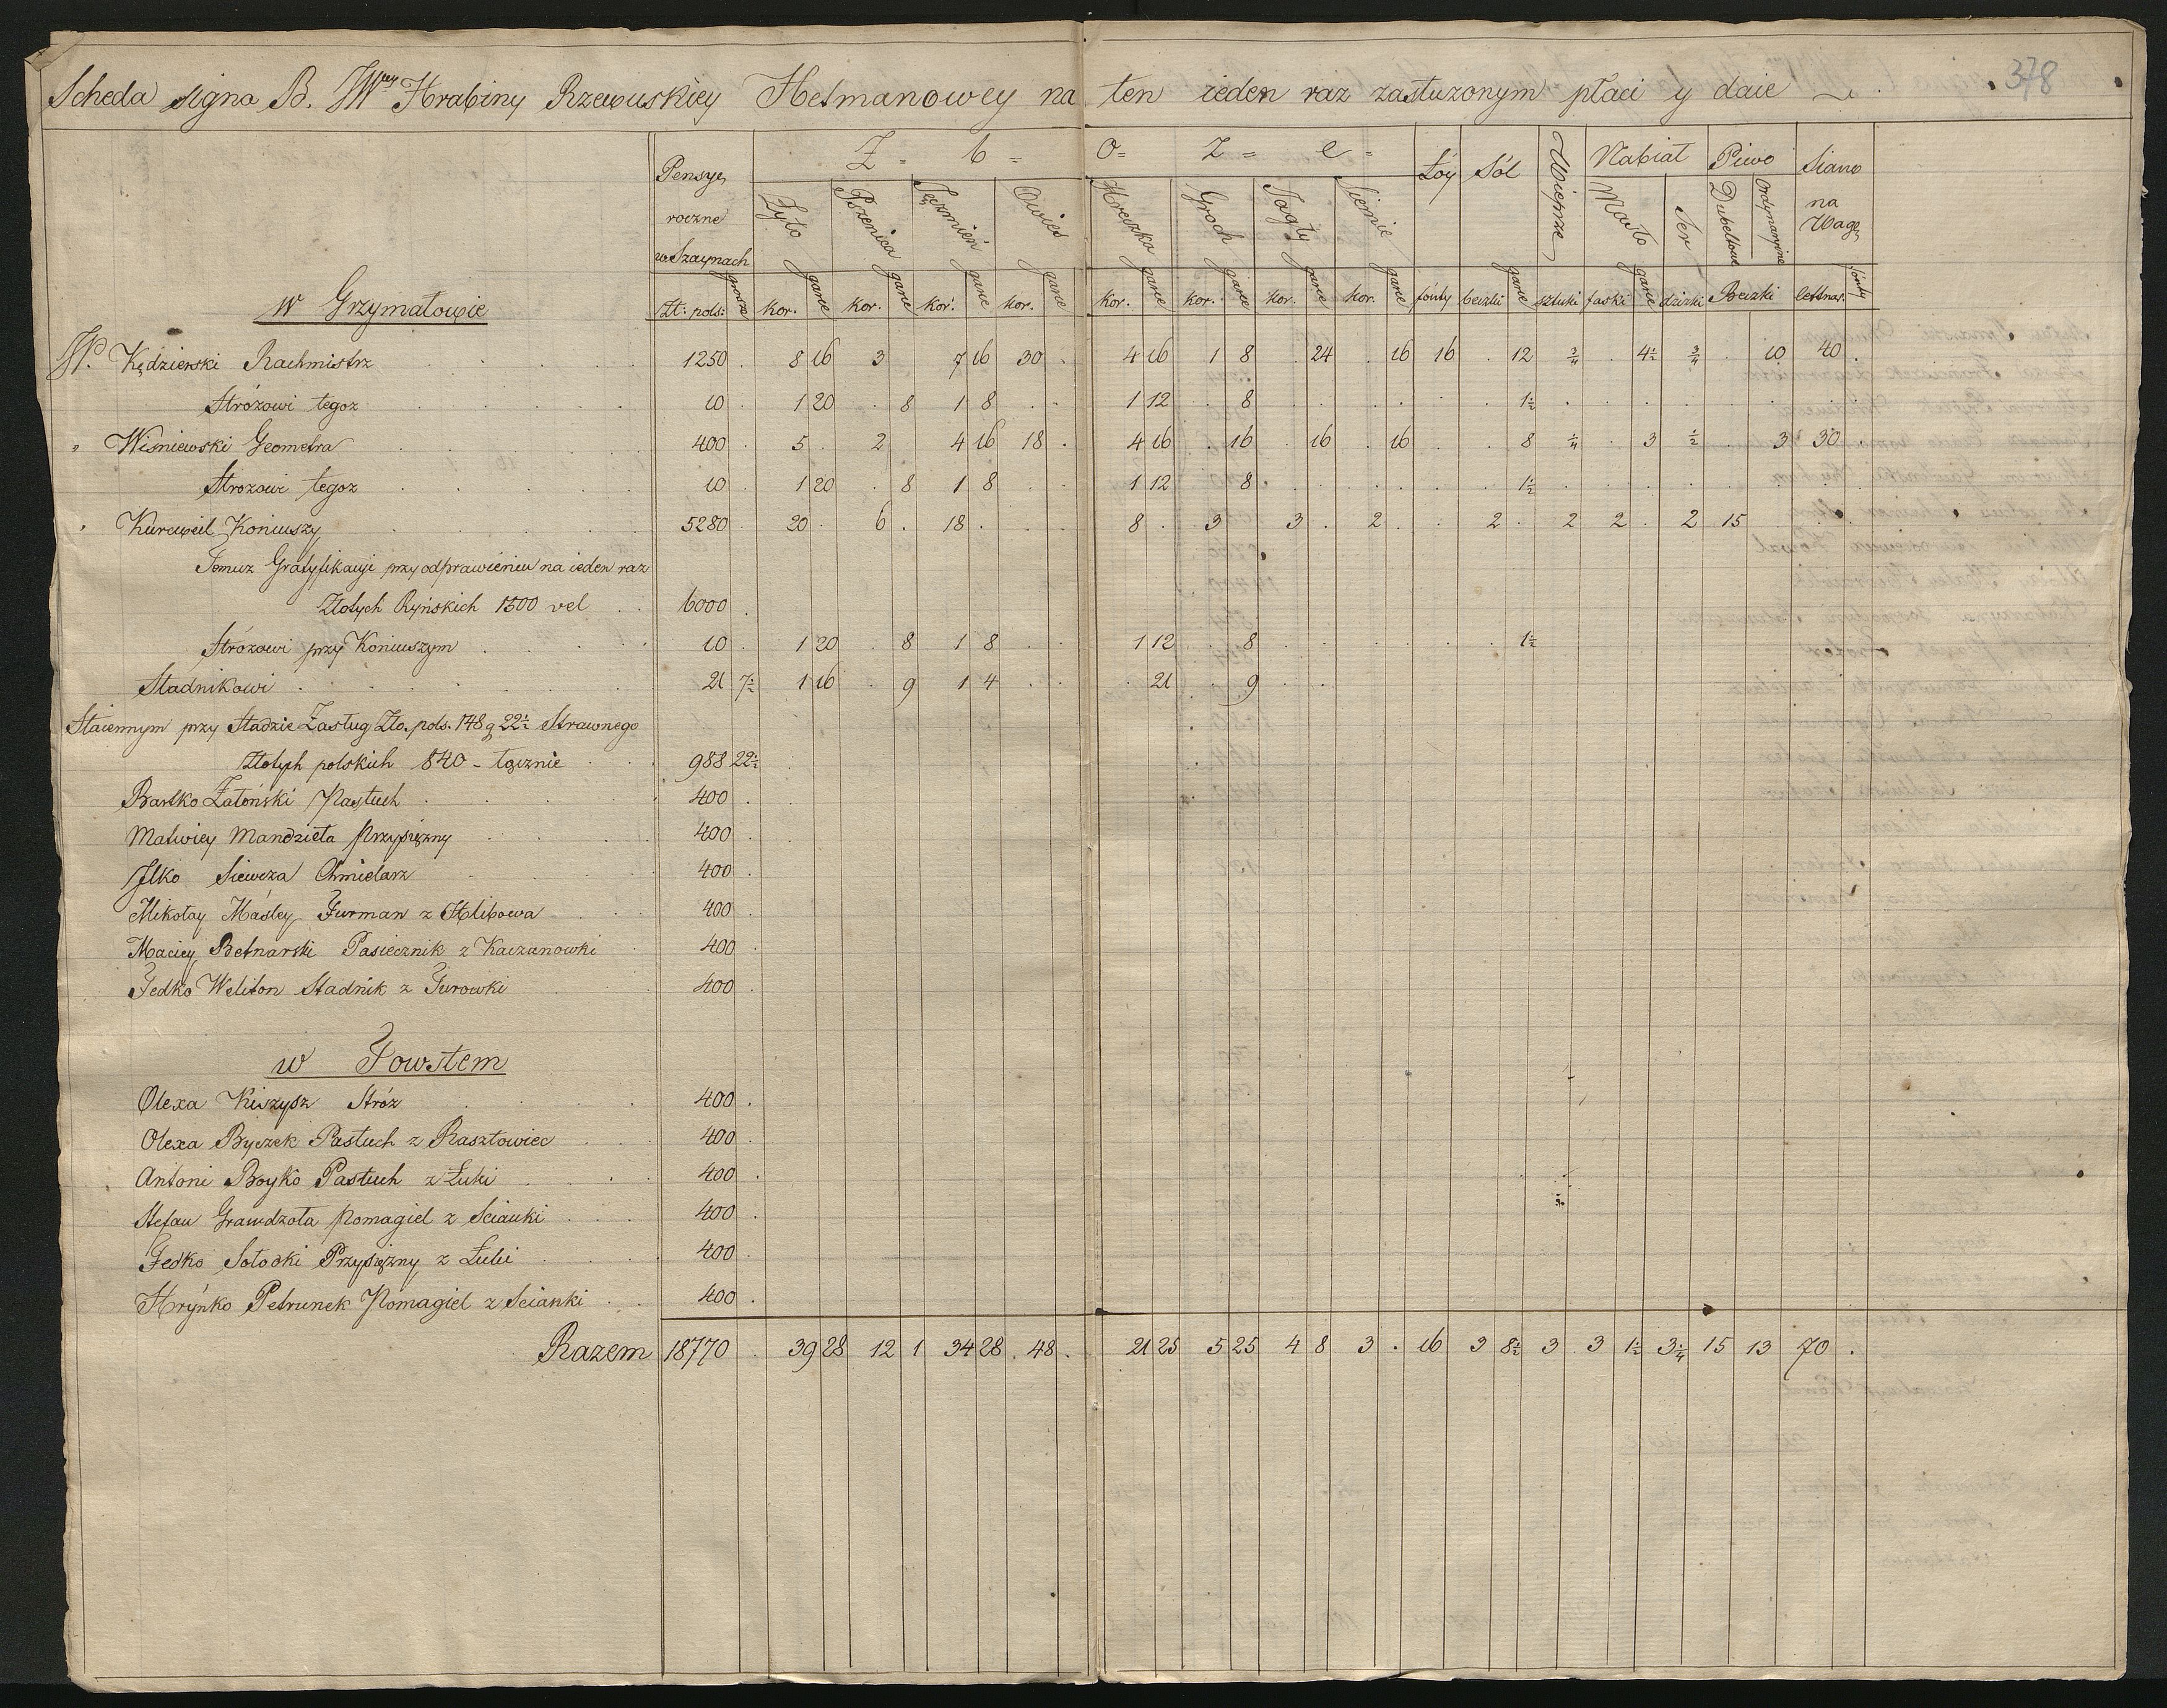 378
Scheda signo B. JWney Hrabiny Rzewuskiey Hetmanowey na ten ieden raz zasłużonym płaci y daie
Pensye roczne w Szaynach Z = b = o = ż = e = Łóy Sól Wieprze Nabiał Piwo Siano na Wagę
Żyto Pszenica Jęczmień Owies Hreczka Groch Jagły Siemie Masło Ser Dubeltowe Ordynaryine
Zł: pols: grosze kor. garce kor. garce kor. garce kor. garce kor. garce kor. garce kor. garce kor. garce fónty beczki garce sztuki faski garce dzizki Beczki cettnar. fónty
w Grzymałowie
JP. Kędzierski Rachmistrz 1250 . 8 16 3 7 16 30 . 4 16 1 8 . 24 . 16 16 . 12 3/4 . 4 1/2 3/4 . 10 40 .
Stróżowi tegoż 10 . 1 20 . 8 1 8 . . 1 12 . 8 . . . . . . 1 1/2 . . . . . . . .
" Wiśniewski Geometra 400 . 5 . 2 4 16 18 . 4 16 . 16 . 16 . 16 . . 8 1/4 . 3 1/2 . 3 30 .
Strozowi tegoz 10 . 1 20 . 8 1 8 . . 1 12 . 8 . . . . . . 1 1/2 . . . . . . . .
" Kurcweil Koniuszy 5280 . 20 . 6 . 18 . . . 8 . 3 3 . 2 . . 2 . 2 2 . 2 15 . . .
Temuz Gratyfikacyi przy odprawieniu na ieden raz
Złotych Ryńskich 1500 vel 6000 .
Stróżowi przy Koniuszym 10 . 1 20 . 8 1 8 . . 1 12 . 8 . . . . . . 1 1/2
Stadnikowi 21 7 1/2 1 16 . 9 1 4 . . . 21 . 9 . .
Staiennym przy Stadzie Zasług Zło. pols. 148 g 22 1/2 Strawnego
Złotych polskich 840 - łącznie 988 22 1/2
Bartko Załoński Pastuch 400 .
Matwiey Mandzieła Przysiężny 400 .
Ilko Siewcza Chmielarz 400 .
Mikołay Masley Furman z Hlibowa 400 .
Maciey Betnarski Pasiecznik z Kaczanowki 400 .
Fedko Weliton Stadnik z Turowki 400 .
w Towstem
Olexa Kiszysz Stróz 400 .
Olexa Byczek Pastuch z Rasztowiec 400 .
Antoni Boyko Pastuch z Łuki 400 .
Stefan Grawdzota Pomagiel z Scianki 400 .
Fedko Sołodki Przysiężny z Łuki 400
Hryńko Petrunek Pomagiel z Scianki 400 .
Razem 18770 . 39 28 12 1 34 28 . 48 . 21 25 5 25 4 8 3 . 16 3 8 1/2 3 3 1 1/2 3 1/4 15 13 70 .